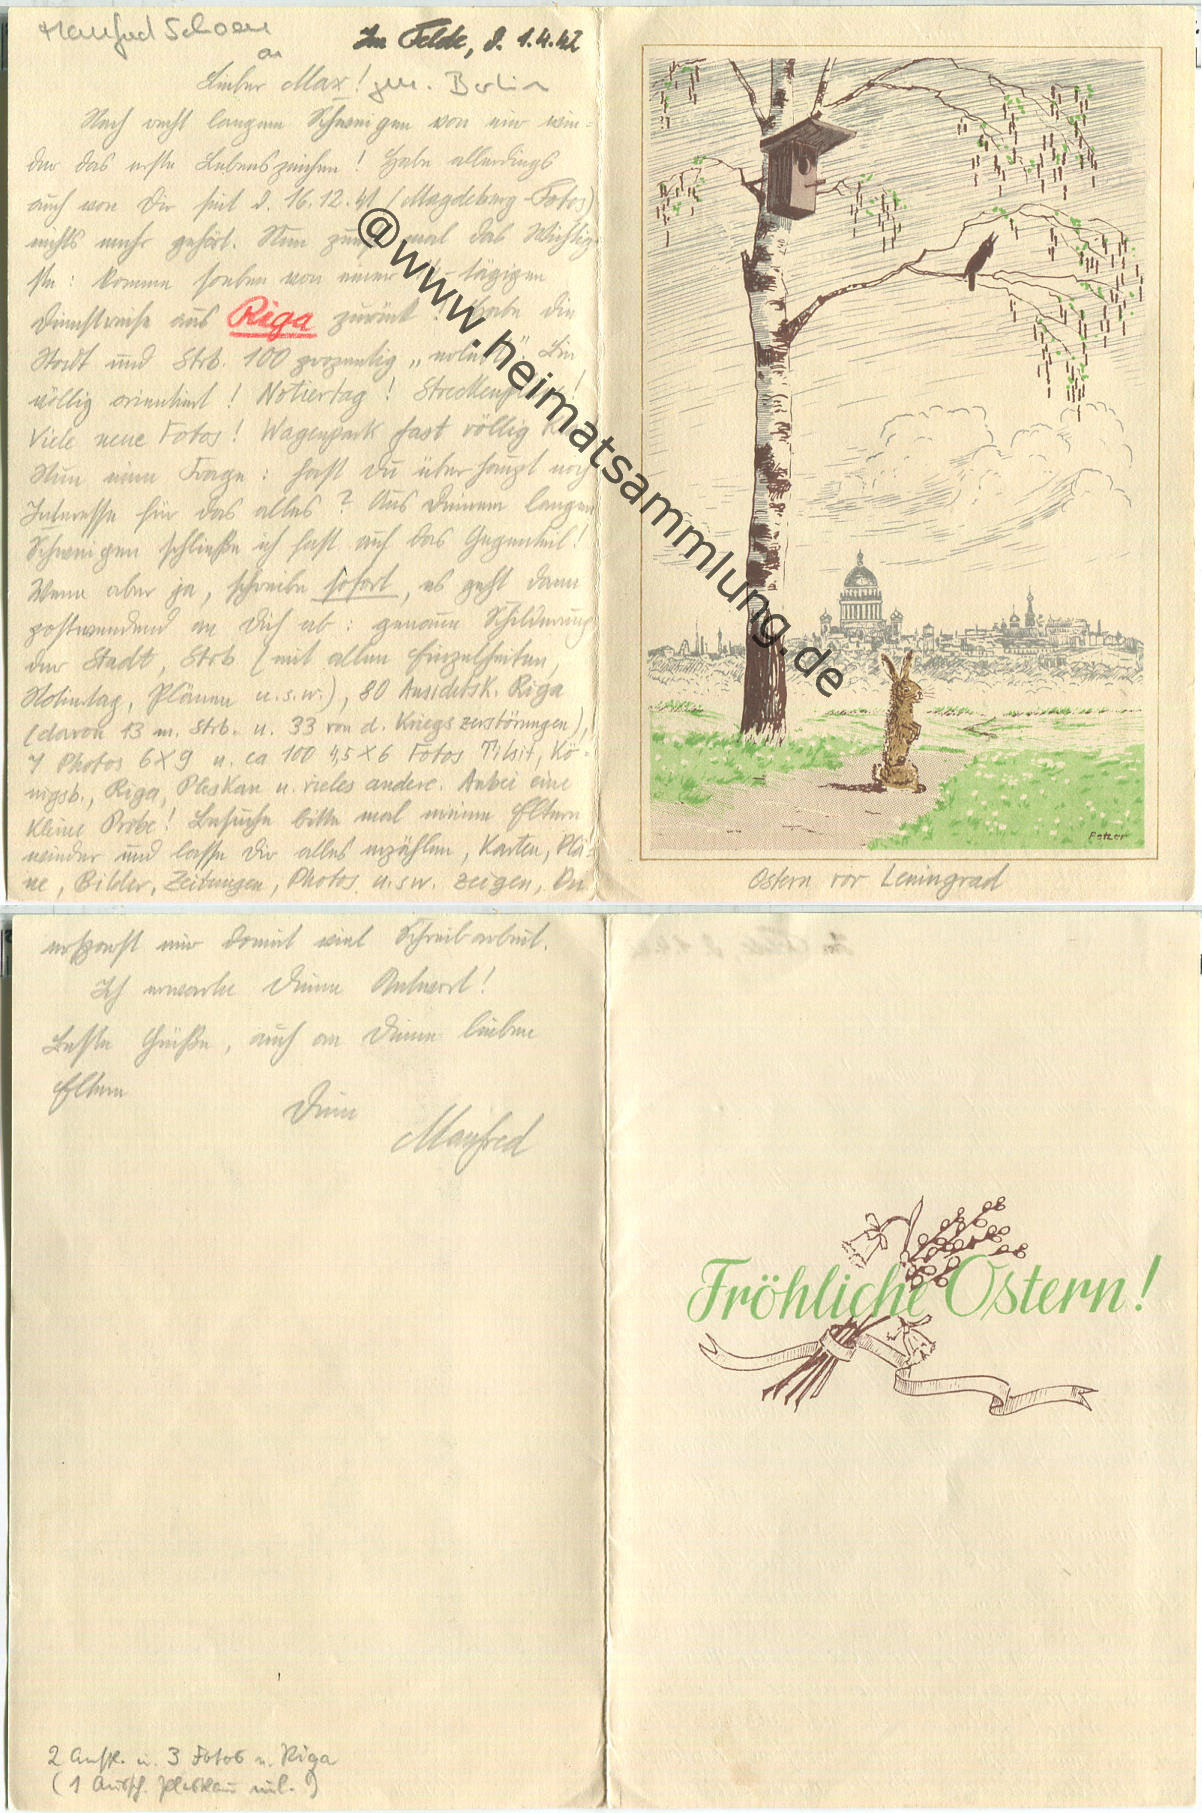 Manfred Schoen
an
Im Felde, d. 1.4.42
Lieber Max! Berlin
Nach recht langem Schweigen von mir wie=
der das erste Lebenszeichen! Habe allerdings
auch von Dir seit d. 16.12.41 (Magdeburg-Fotos)
nichts mehr gehört. Nun zuerst mal das Wichtig-
ste: komme soeben von einer -tägigen
Dienstreise aus Riga zurück! Habe die
Stadt und Strb. 100 prozentig „erlebt“. Bin
völlig orientiert! Notiertag! Streckenplan!
Viele neue Fotos! Wagenpark fast völlig
Nun eine Frage: hast Du überhaupt noch
Interesse für das alles? Aus Deinem langen
Schweigen schließe ich fast auf das Gegenteil!
Wenn aber ja, schreibe sofort, es geht dann
postwendend an Dich ab: genaue Schilderung
der Stadt, Strb (mit allen Einzelheiten,
Notiertag, Plänen u.s.w.), 80 Ansichtsk. Riga
(davon 13 m. Strb. u. 33 von d. Kriegszerstörungen),
7 Photos 6X9 u. ca 100 4,5X6 Fotos Tilsit, Kö-
nigsb., Riga, Pleskau u. vieles andere. Anbei eine
kleine Probe! Besuche bitte mal meine Eltern
wieder und lasse Dir alles erzählen, Karten, Plä-
ne, Bilder, Zeitungen, Photos u.s.w. zeigen, Du
@www.heimatsammlung.de
Petzer
Ostern vor Leningrad
ersparst mir damit viel Schreibarbeit.
Ich erwarte Deine Antwort!
Beste Grüße, auch an Deine lieben
Eltern
Dein
Manfred
2 Ansk. u. 3 Fotos v. Riga
(1 Pleskau
Fröhliche Ostern!